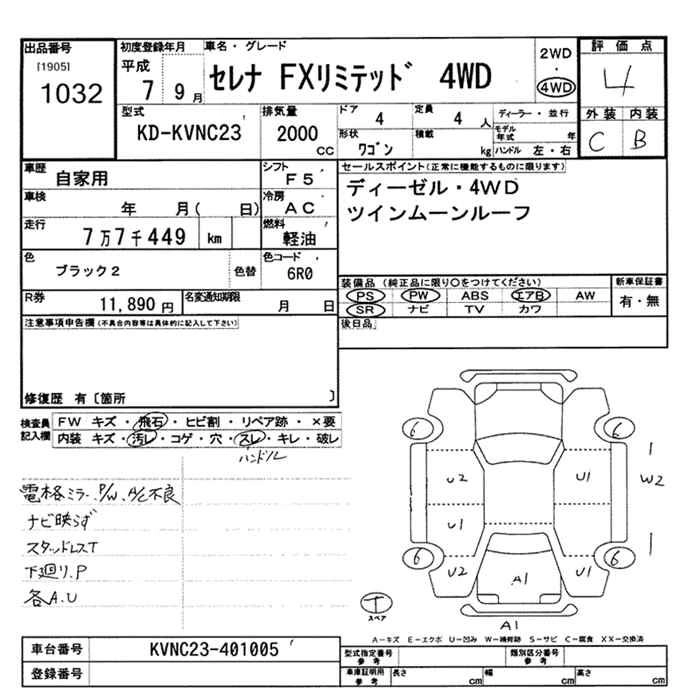 出品番号
[1905]
1032
初度登録年月
平成
7 9月
車名・グレード
セレナ FXリミテッド 4WD
2WD
・
4WD
評価点
4
外装 内装
C B
型式
KD-KVNC23
排気量
2000
CC
ドア
4
定員
4 人
形状
ワゴン
積載
kg
ディーラー・並行
モデル年式 年
ハンドル 左・右
車歴
自家用
シフト
F5
車検
年 月( 日)
冷房
AC
走行
7万7千449 km
燃料
軽油
色
ブラック2
色替
色コード
6R0
R券
11,890 円
名変通知期限
月 日
セールスポイント(正常に機能するものに限ります)
ディーゼル・4WD
ツインムーンルーフ
装備品 (純正品に限り○をつけてください)
PS PW ABS エアB AW
SR ナビ TV カワ
新車保証書
有・無
後日品
注意事項申告欄(不具合内容等は具体的に記入して下さい)
修復歴 有〔箇所 〕
検査員記入欄
FW キズ・飛石・ヒビ割・リペア跡・×要
内装 キズ・汚レ・コゲ・穴・スレ・キレ・破レ
ハンドル
電格ミラー、P/W、A/C不良
ナビ映らず
スタッドレスT
下廻リ.P
各A.U
6 6
U2 U1 W2
U1
6 6
U2 A1 U1
T
スペア
A1
A－キズ E－エクボ U－凹み W－補修跡 S－サビ C－腐食 XX－交換済
車台番号
KVNC23-401005
登録番号
型式指定番号
参考
類別区分番号
参考
車庫証明用
参考
長さ cm
幅 cm
高さ cm